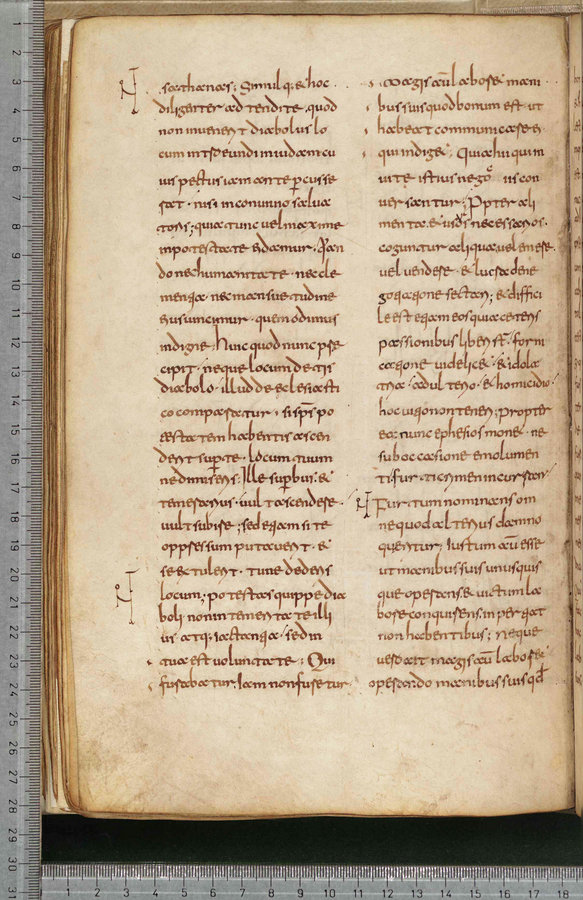 sathanas; Simul q; & hoc
diligenter ad tendite quod
non inuenerit diabolus lo
cum introeundi
uis pectus iam ante p cusse
rat · nisi in
toris; quae tunc uel maxime
in potestate damur · Quan
do nec humanitate · nec cle
mentia · nec mansuetudine
eius uincimur · quem odimus
indigne. Nunc quod nunc prae
cipit · neque locum detis
diabolo · illud de eclesiasti
co comparatur · si sps po
testatem habentis ascen
derit sup te · locum tuum
ne dimiseris; Ille supbus &
temerarius · uult ascendere ·
uult subire; sed etiam si te
oppressum putauerit · &
se extulerit · tu ne dederis
locum; potestas quippe dia
boli non in temeritate illi
us atq; iactantia · sed in
tua est uoluntate; Qui
furabatur, Iam non furetur
magis au laboret mani
bus suis quod bonum est ut
habeat communicare ei
qui indiget · Quia
uite istius con
uersantur; Ppter ali
menta & necessarios ·
coguntur aliqua uel emere ·
uel uendere · & lucra de ne
gotiatione sectari; & diffici
le est etiam eos qui a ceteris
passionibus liberi st · forni
catione uidelicet · & idola
tria · adulterio · & homicidio ·
hoc uitio non teneri; propter
ea nunc ephesios monet · ne
sub occasione emolumen
ti furti crimen incurrant
Furtum nominans om
ne quod alterius damno
queritur; Iustum au esse
ut manibus suis unusquis
que operans & uictum la
bore conquirens inpertiat
non habentibus; neque
ait magis au laboret
operando manibus suis qd